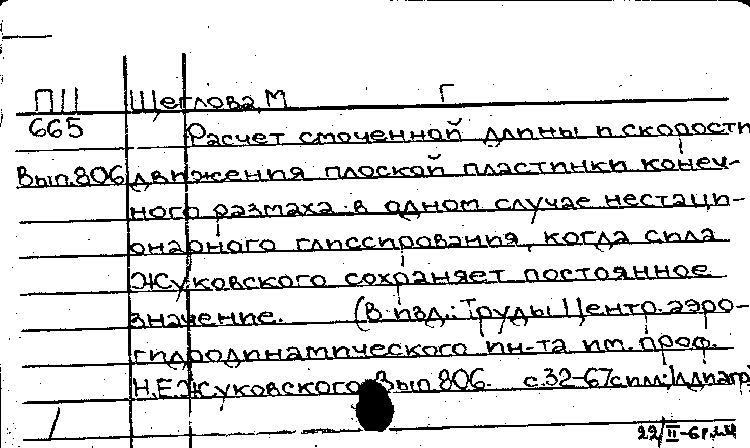 ПЦ Щеглова, М Г
665 Расчет смоченной длины и скорости
Вып.806 движения плоской пластинки конеч-
ного размаха в одном случае нестаци-
онарного глиссирования, когда сила
Жуковского сохраняет постоянное
значение. (В изд.: Труды Центр. аэро-
гидродинамического ин-та им. проф.
Н.Е.Жуковского Вып 806. с.32-67 с илл;